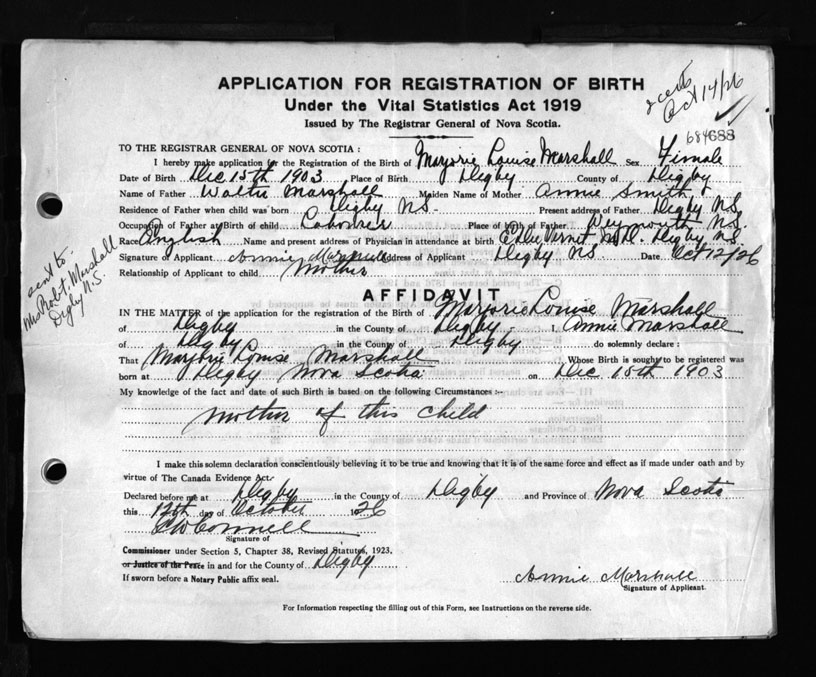 APPLICATION FOR REGISTRATION OF BIRTH
Under the Vital Statistics Act 1919
Issued by The Registrar General of Nova Scotia.
2 certs
Oct 14/26
684688
TO THE REGISTRAR GENERAL OF NOVA SCOTIA :
I hereby make application for the Registration of the Birth of Marjorie Louise Marshall Sex Fimale
Date of Birth Dec 15th 1903 Place of Birth Digby County of Digby
Name of Father Walter Marshall Maiden Name of Mother Annie Smith
Residence of Father when child was born Digby N.S. Present address of Father Digby N.S.
Occupation of Father at Birth of child Labourer Place of birth of Father Weymouth N.S.
Race English Name and present address of Physician in attendance at birth M.D. Digby N.S.
Signature of Applicant Annie Marshall Address of Applicant Digby N.S. Date Oct 12/26
Relationship of Applicant to child Mother
sent to
Mrs Robt. Marshall
Digby N.S.
AFFIDAVIT
IN THE MATTER of the application for the registration of the Birth of Marjorie Louise Marshall
of Digby in the County of Digby I, Annie Marshall
of Digby in the County of Digby do solemnly declare :
That Marjorie Louise Marshall Whose Birth is sought to be registered was
born at Digby Nova Scotia on Dec 15th 1903
My knowledge of the fact and date of such Birth is based on the following Circumstances :-
Mother of this child
I make this solemn declaration conscientiously believing it to be true and knowing that it is of the same force and effect as if made under oath and by
virtue of The Canada Evidence Act.
Declared before me at Digby in the County of Digby and Province of Nova Scotia
this 12th day of October 1926
Signature of
Commissioner under Section 5, Chapter 38, Revised Statutes, 1923.
or Justice of the Peace in and for the County of Digby
If sworn before a Notary Public affix seal.
Annie Marshall
Signature of Applicant.
For Information respecting the filling out of this Form, see Instructions on the reverse side.